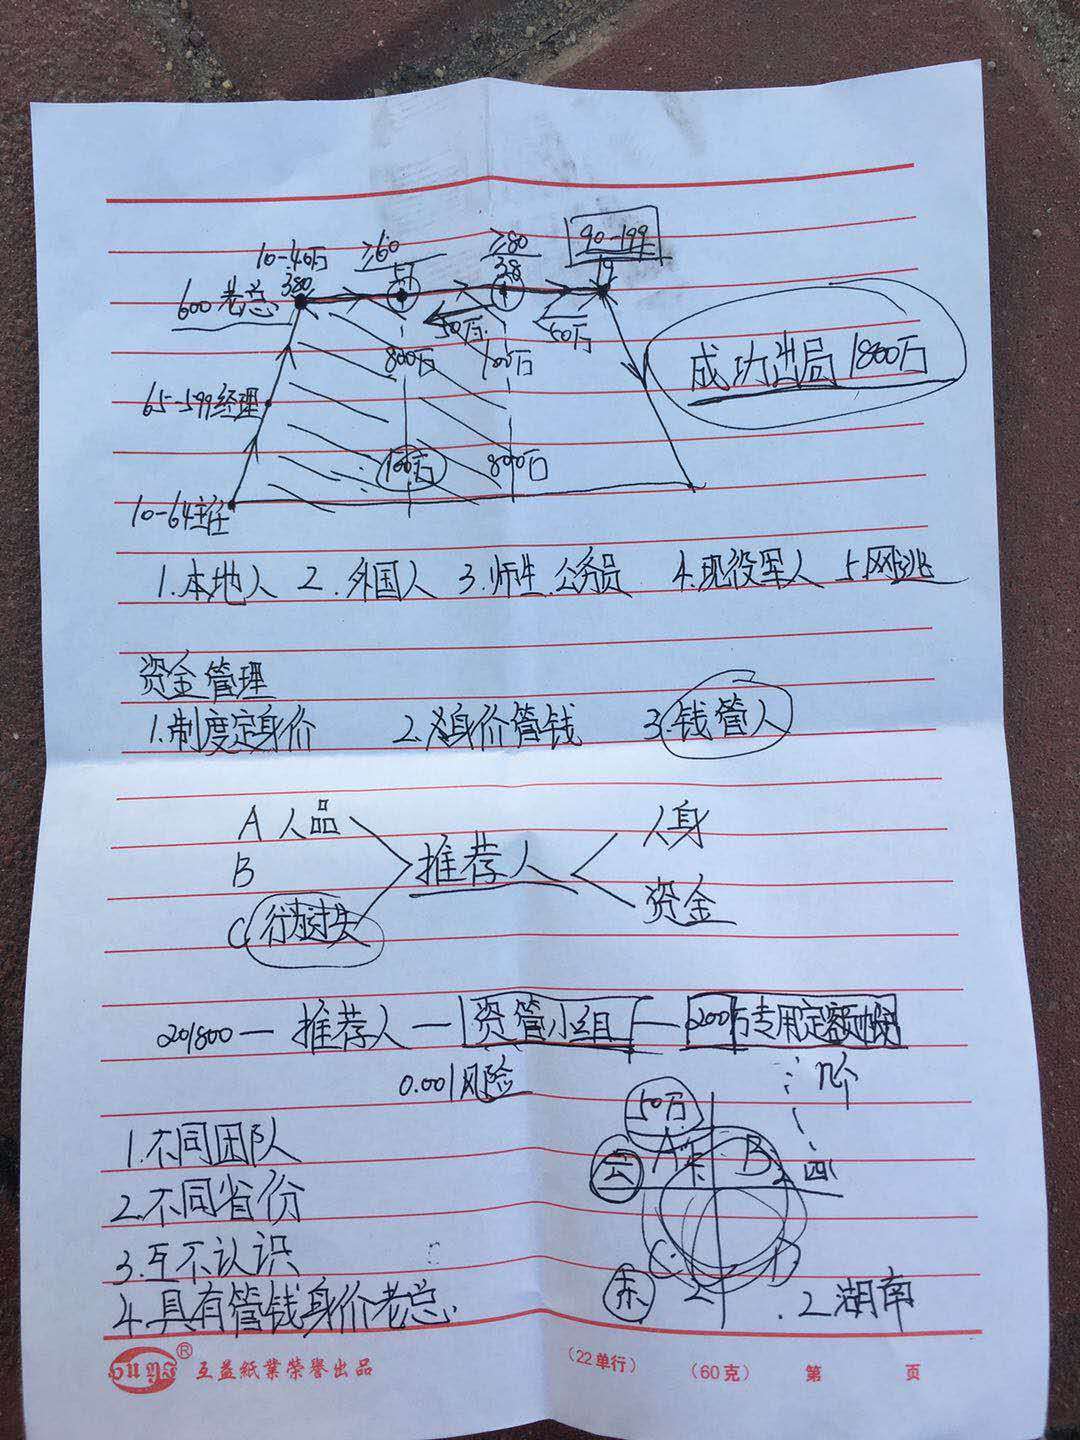 10-40万 ≥60 ≥80 90-199
600老总 380 57 38 19
50万 50万
800万 100万
成功出局 1800万
65-599经理
100万 800万
10-64主任
1.本地人 2.外国人 3.师生.公务员 4.现役军人 5.网逃
资金管理
1.制度定身价 2.身价管钱 3.钱管人
A 人品
B
C
推荐人
人身
资金
201800 — 推荐人 — 资管小组 — 200万专用定额
0.001风险
几个
1.不同团队
2.不同省份
3.互不认识
4.具有管钱身价老总.
50万
云 A 卡 B 2 四
C D
苏 2 2湖南
®互益紙業榮譽出品 (22单行) (60克) 第 页